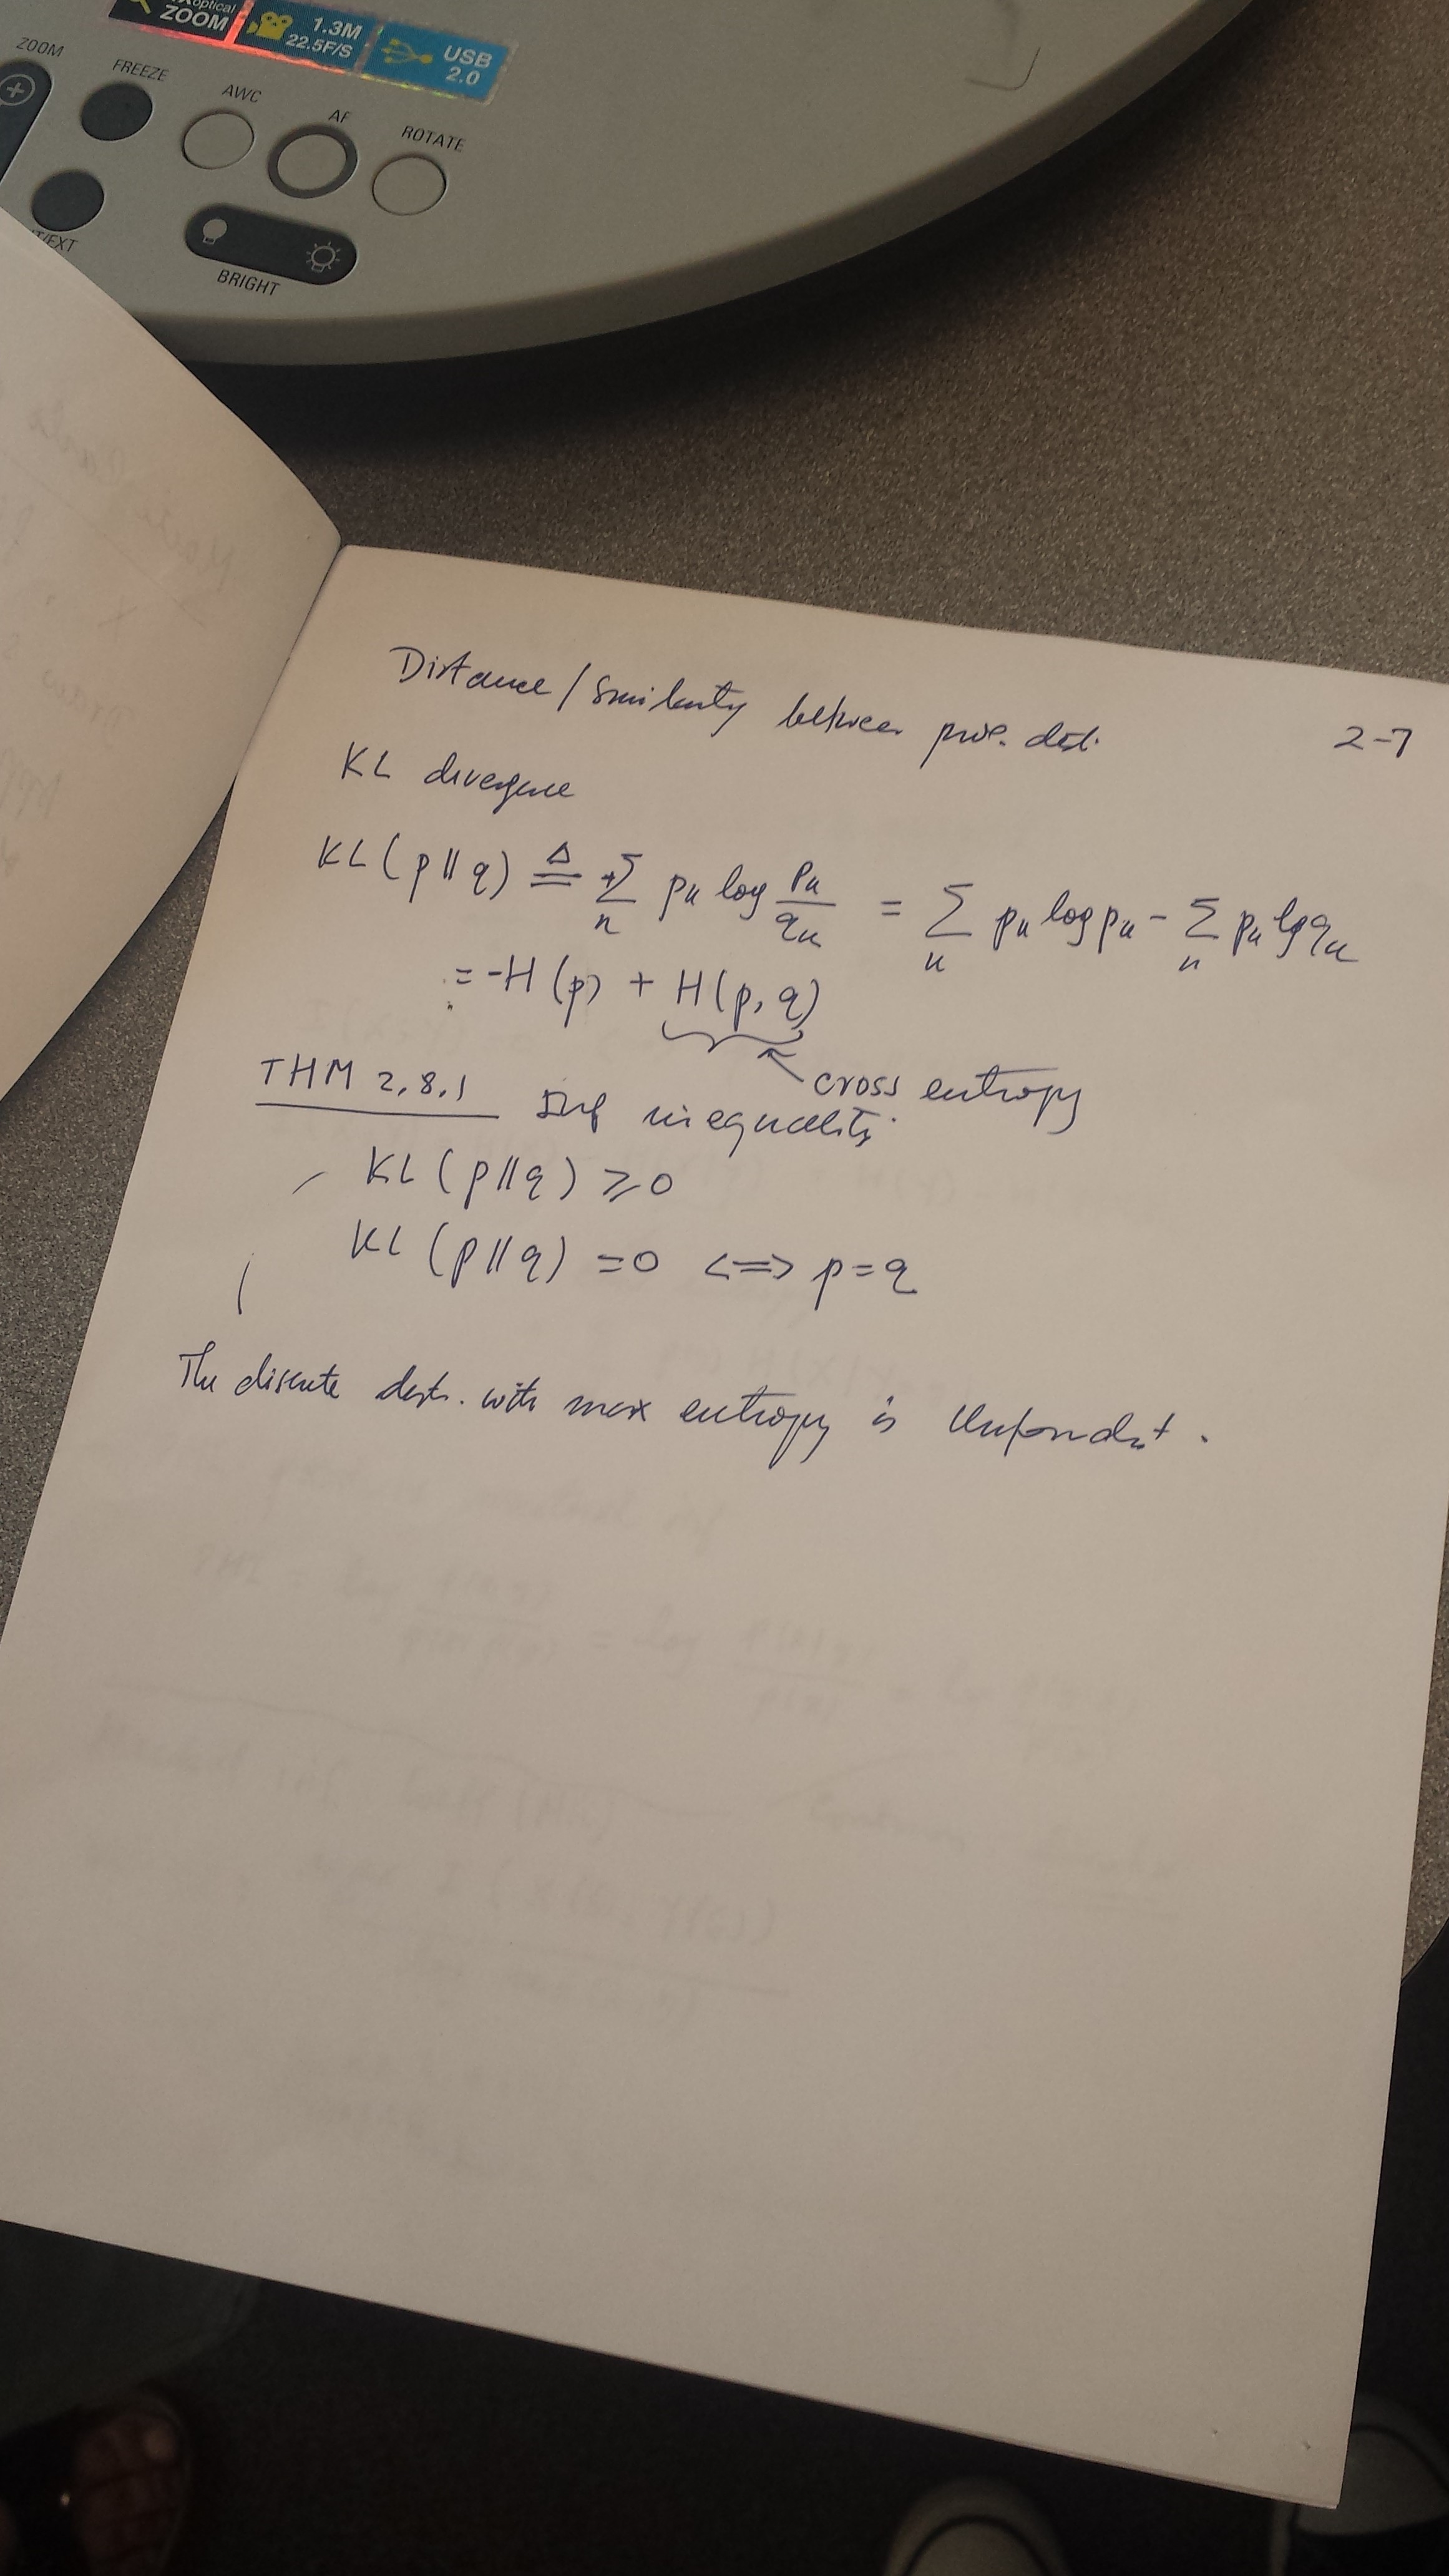 optical
ZOOM
1.3M
22.5F/S
USB
2.0
ZOOM
FREEZE
AWC
AF
ROTATE
T/EXT
BRIGHT
Distance / Similarity between prob. dist. 2-7
KL divergence
KL(p‖q) ≜ +∑_n p_n log p_n/q_n = ∑_n p_n log p_n - ∑_n p_n log q_n
= -H(p) + H(p,q)
cross entropy
THM 2.8.1 Inf inequality
KL(p‖q) ≥ 0
KL(p‖q) = 0 <=> p = q
The discrete distr. with max entropy is